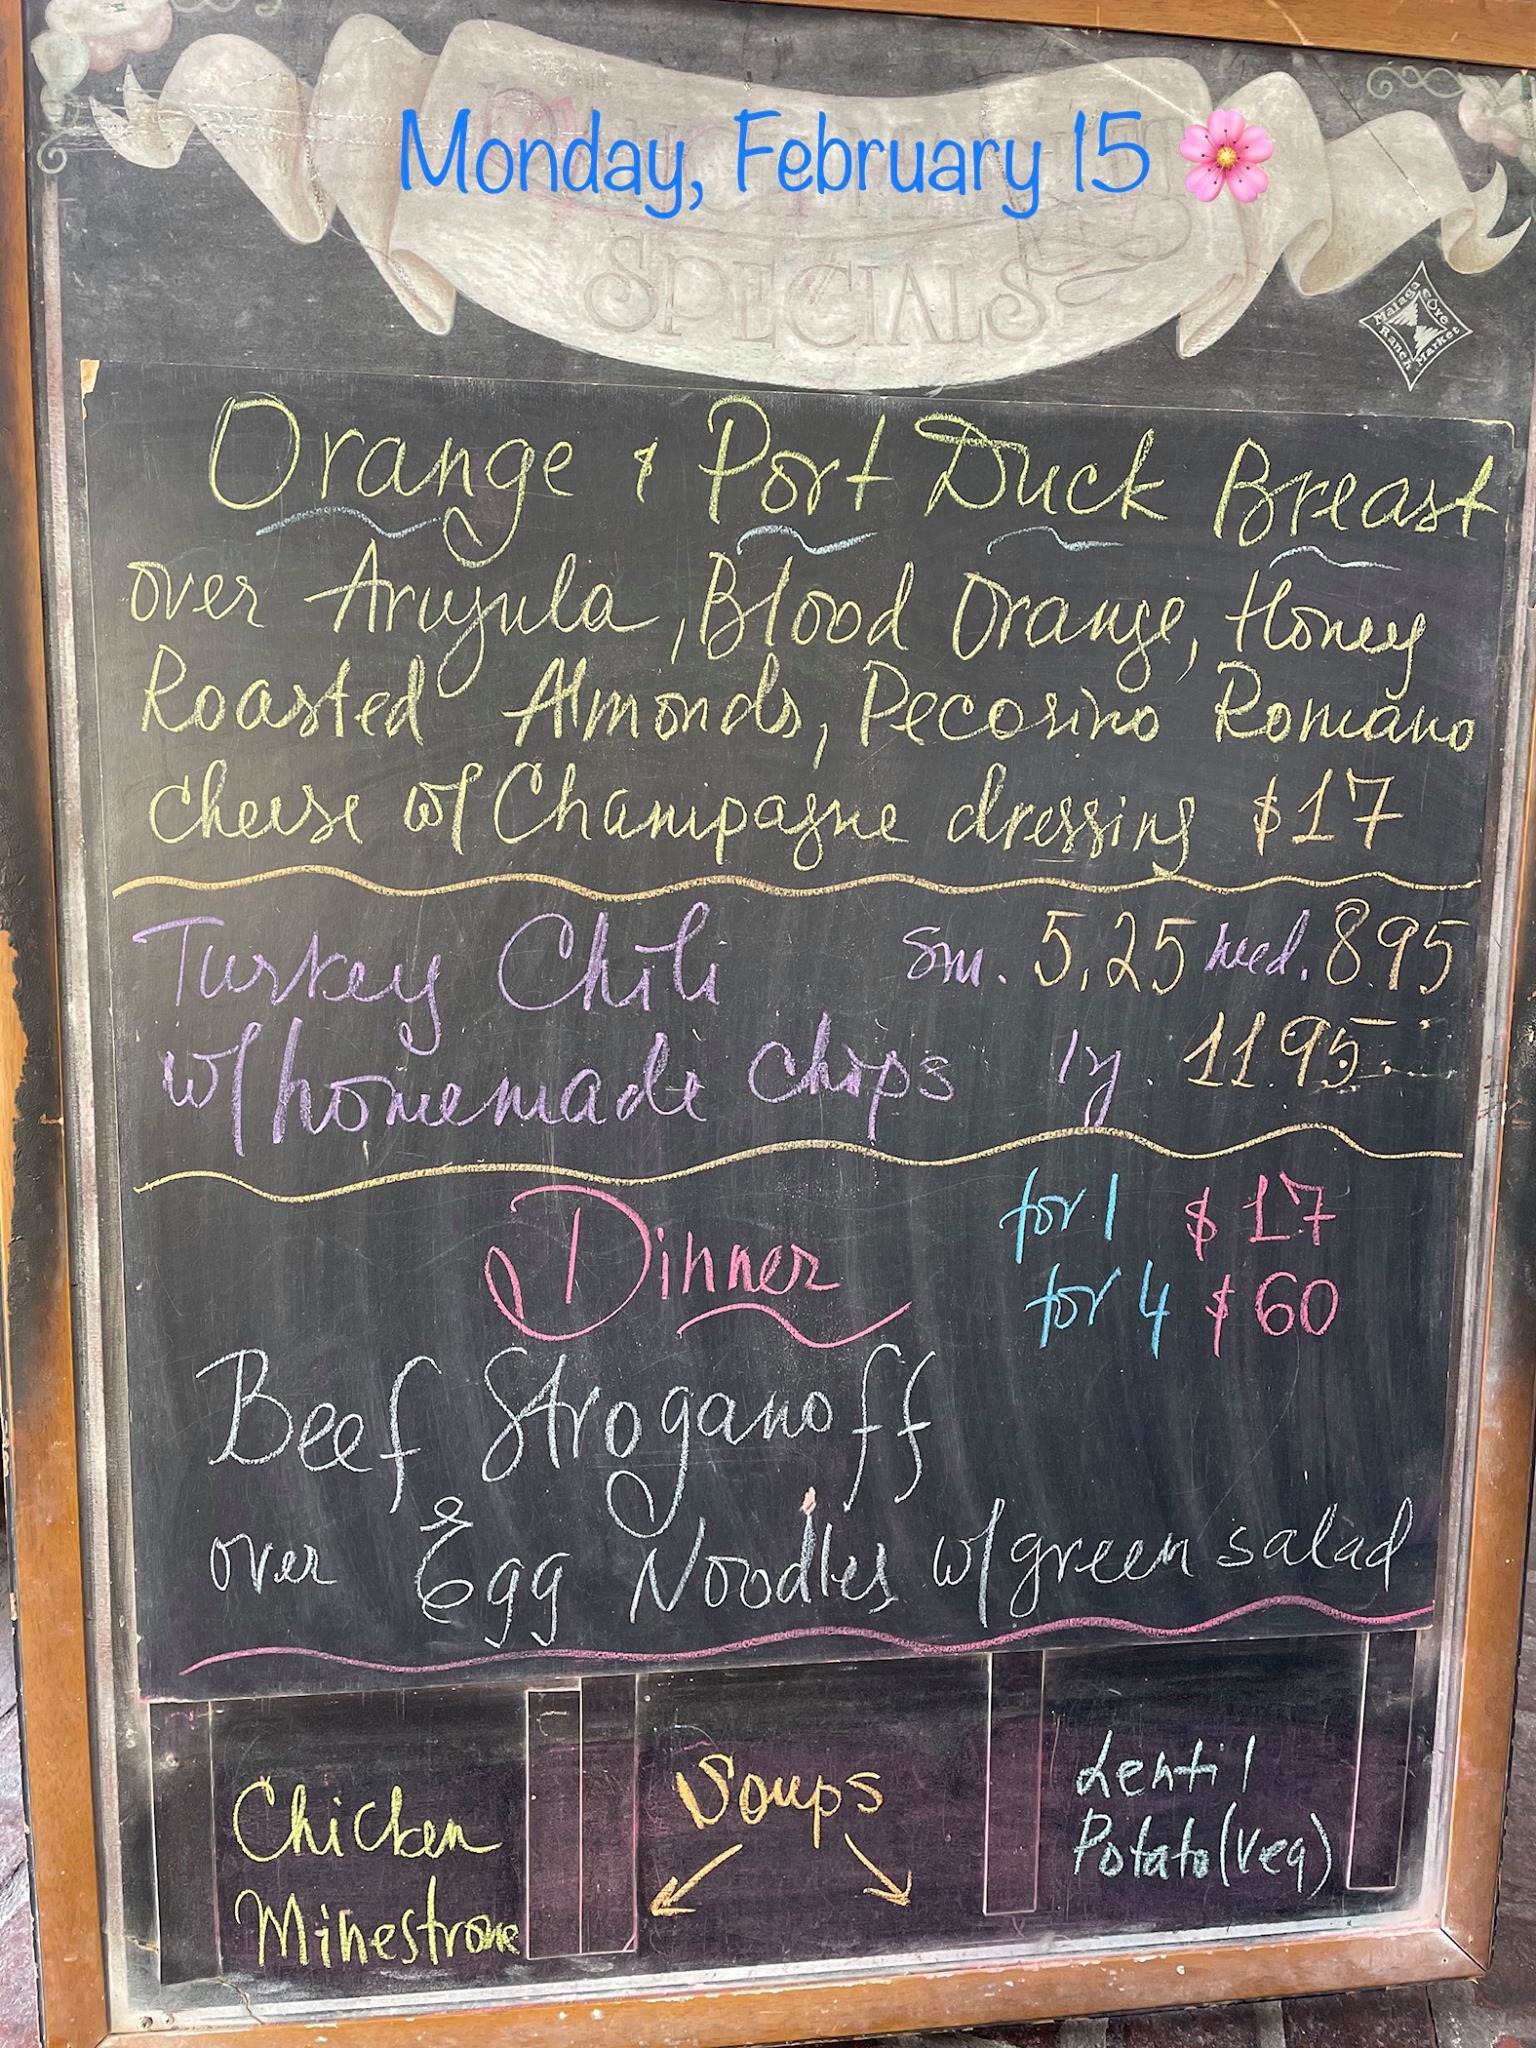 Monday, February 15
SPECIALS
Malaga Cove
Ranch Market
Orange & Port Duck Breast
over Arugula, Blood Orange, Honey
Roasted Almonds, Pecorino Romano
cheese w/ Champagne dressing $17
Turkey Chili sm. 5,25 med. 8.95
w/ homemade chips lg. 11.95
Dinner for 1 $17
for 4 $60
Beef Stroganoff
over Egg Noodles w/ green salad
Soups
Chicken
Minestrone
Lentil
Potato (Veg)